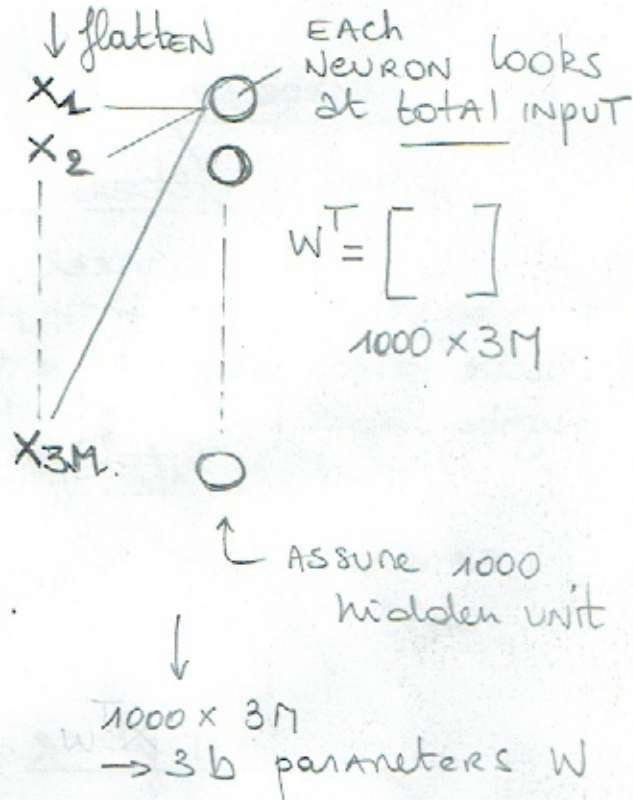 ↓ flatten
EACH
NEURON looks
at total INPUT
X1
X2
W^T = [ ]
1000 × 3M
X3M.
Assume 1000
hidden unit
↓
1000 × 3M
→ 3b parameters W